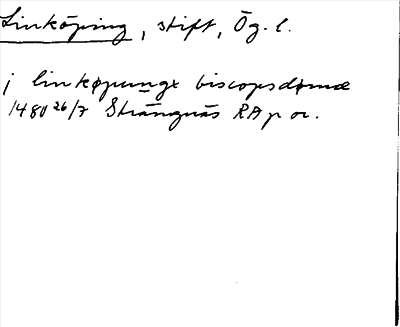 Linköping, stift, Ög. l.
j linköpungx biscopsdømæ
1480 26/7 Strängnäs RA p or.